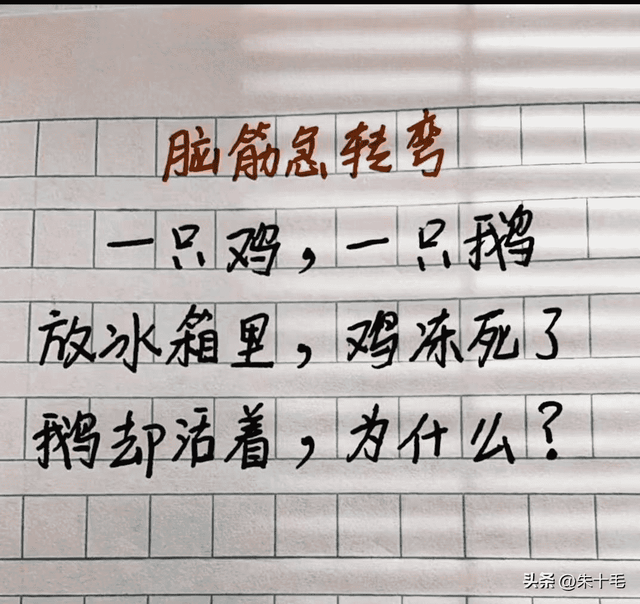 脑筋急转弯
一只鸡，一只鹅
放冰箱里，鸡冻死了
鹅却活着，为什么？
头条 @朱十毛